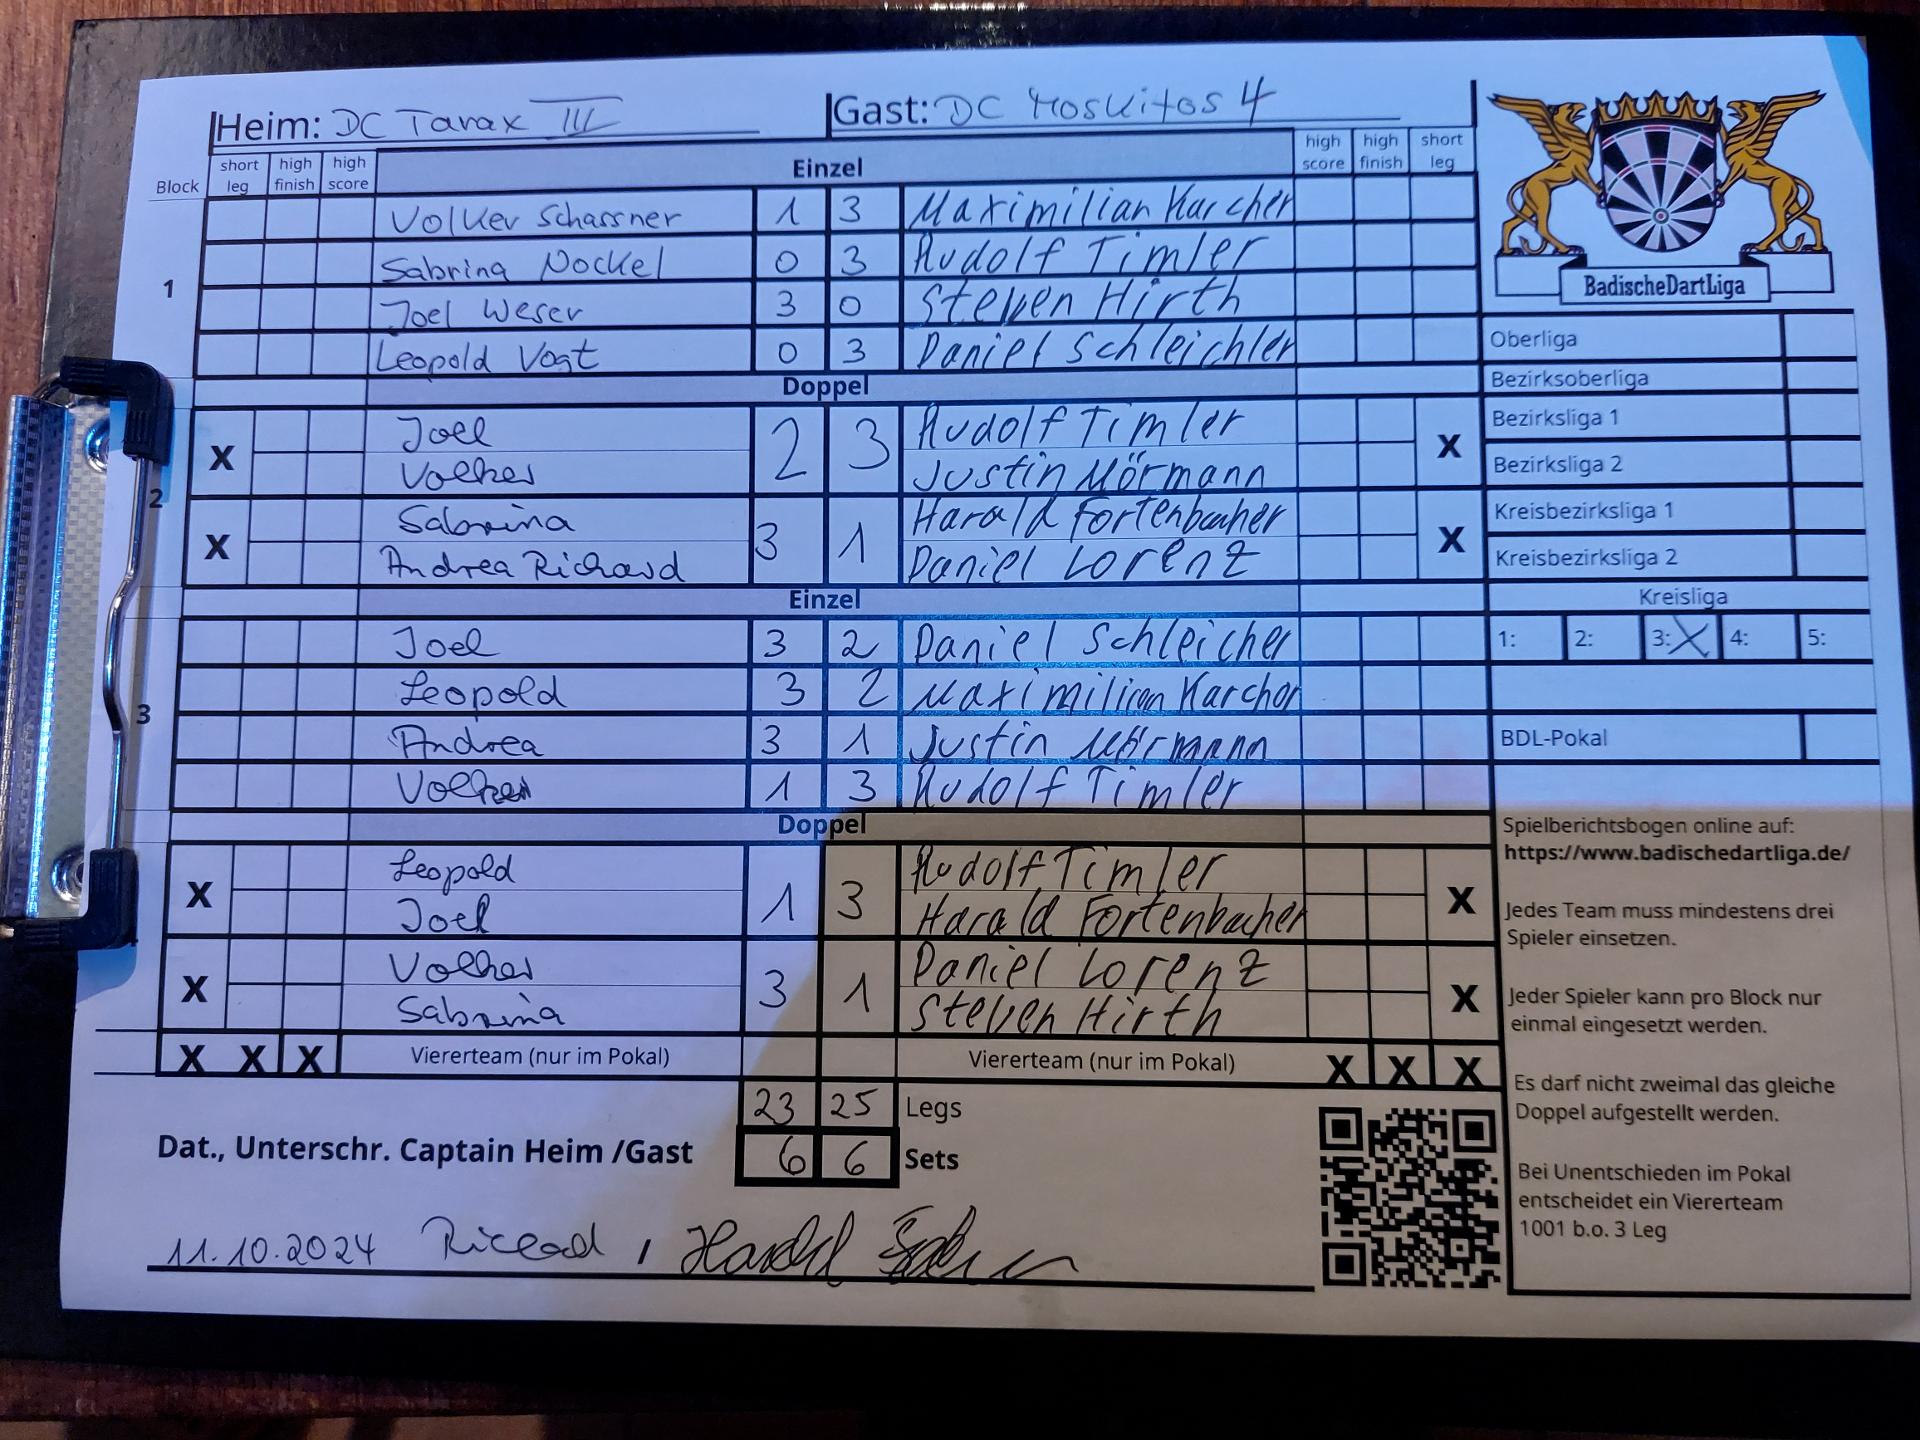 Heim: DC Tarax III Gast: DC Moskitos 4
Block short leg high finish high score Einzel high score high finish short leg
1
Volker Schassner 1 3 Maximilian Karcher
Sabrina Nockel 0 3 Rudolf Timler
Joel Weser 3 0 Steven Hirth
Leopold Vogt 0 3 Daniel Schleichler
Doppel
2
X Joel 2 3 Rudolf Timler X
Volker Justin Mörmann
X Sabrina 3 1 Harald Fortenbacher X
Andrea Richard Daniel Lorenz
Einzel
3
Joel 3 2 Daniel Schleicher
Leopold 3 2 Maximilian Karcher
Andrea 3 1 Justin Mörmann
Volker 1 3 Rudolf Timler
Doppel
X Leopold 1 3 Rudolf Timler X
Joel Harald Fortenbacher
X Volker 3 1 Daniel Lorenz X
Sabrina Steven Hirth
X X X Viererteam (nur im Pokal) Viererteam (nur im Pokal) X X X
23 25 Legs
Dat., Unterschr. Captain Heim /Gast 6 6 Sets
11.10.2024 Harald
BadischeDartLiga
Oberliga
Bezirksoberliga
Bezirksliga 1
Bezirksliga 2
Kreisbezirksliga 1
Kreisbezirksliga 2
Kreisliga
1: 2: 3: X 4: 5:
BDL-Pokal
Spielberichtsbogen online auf:
https://www.badischedartliga.de/
Jedes Team muss mindestens drei
Spieler einsetzen.
Jeder Spieler kann pro Block nur
einmal eingesetzt werden.
Es darf nicht zweimal das gleiche
Doppel aufgestellt werden.
Bei Unentschieden im Pokal
entscheidet ein Viererteam
1001 b.o. 3 Leg